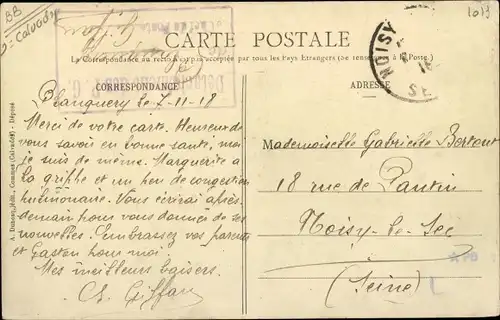 BB
Calvados
1019
CARTE POSTALE
La Correspondance au recto n'est pas acceptée par tous les Pays Étrangers (se renseigner à la Poste.)
CORRESPONDANCE
ADRESSE
NOISY
SE
le 7-11-18
Merci de votre carte. Heureux de
vous savoir en bonne santé, moi
je suis de même. Marguerite a
la grippe et un peu de congestion
pulmonaire. Vous écrirai après-
demain pour vous donner de ses
nouvelles. Embrassez vos parents
et Gaston pour moi.
Mes meilleurs baisers.
Mademoiselle Gabrielle Bertout
18 rue de Pantin
Noisy-le-Sec
(Seine)